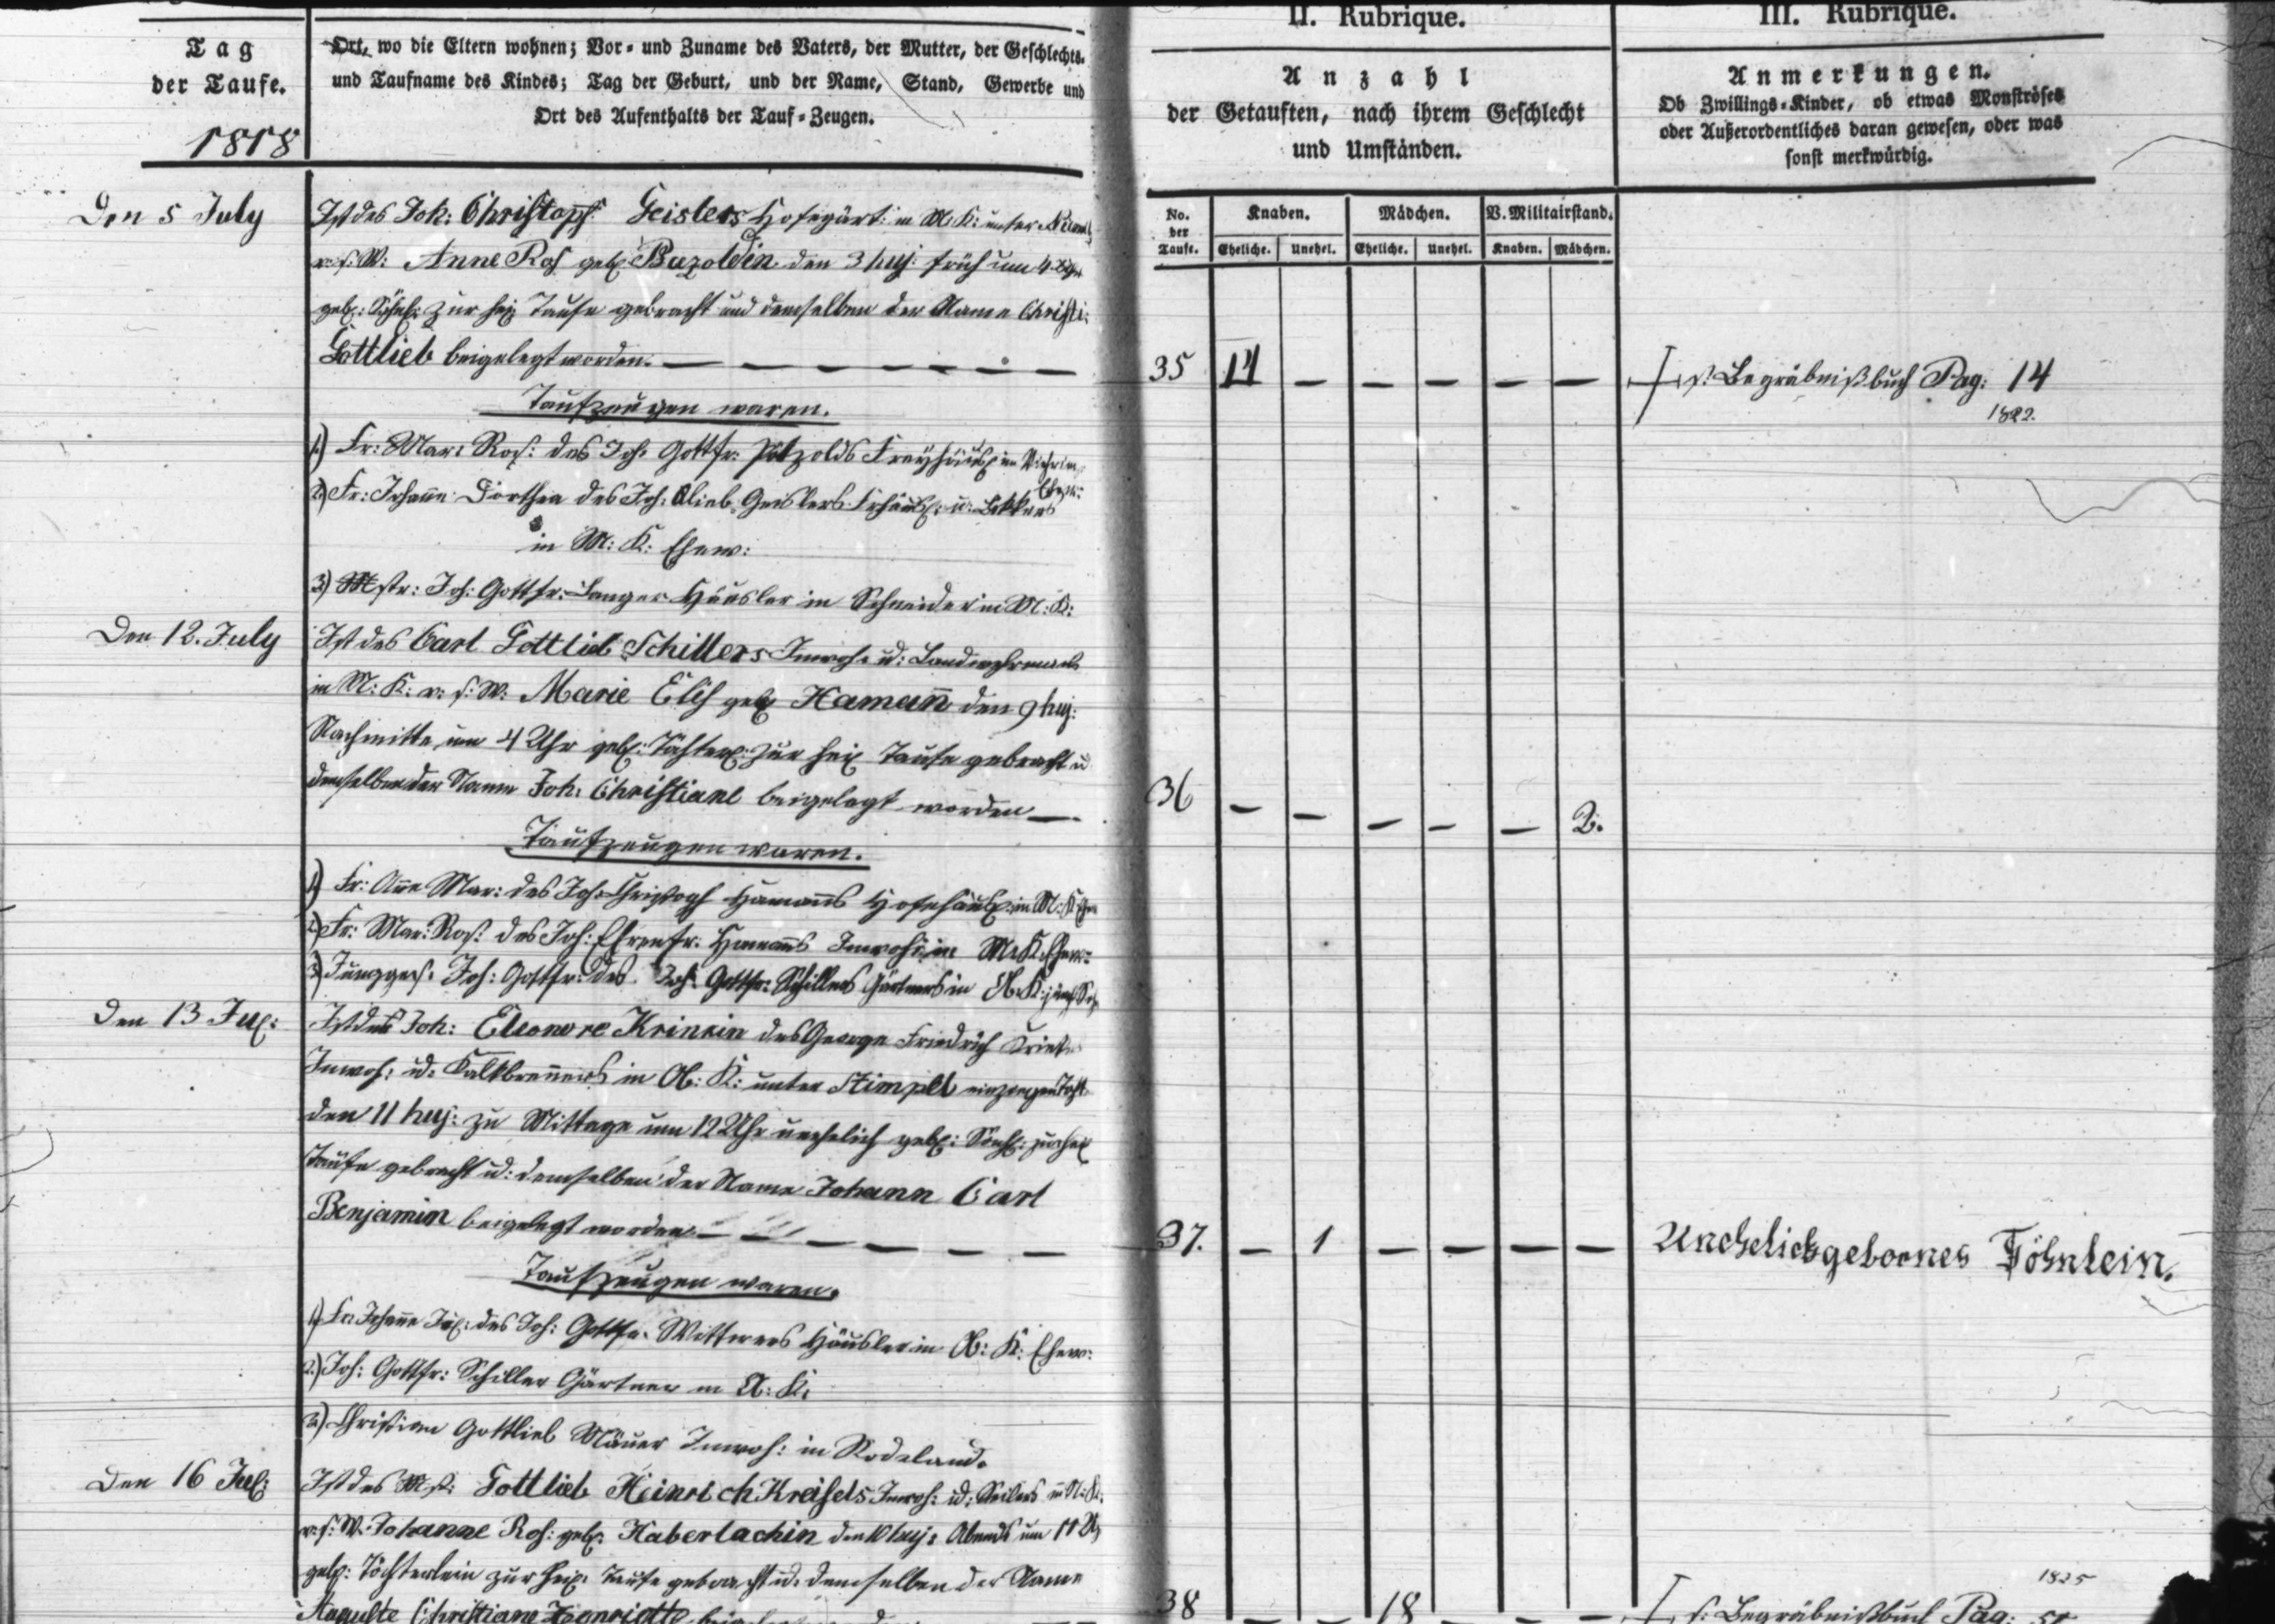 II. Rubrique.
III. Rubrique.
Tag
der Taufe.
1818
Ort, wo die Eltern wohnen; Vor- und Zuname des Vaters, der Mutter, der Geschlechts-
und Taufname des Kindes; Tag der Geburt, und der Name, Stand, Gewerbe und
Ort des Aufenthalts der Tauf-Zeugen.
Anzahl
der Getauften, nach ihrem Geschlecht
und Umständen.
Anmerkungen.
Ob Zwillings-Kinder, ob etwas Monströses
oder Außerordentliches daran gewesen, oder was
sonst merkwürdig.
No. der Taufe.
Knaben.
Mädchen.
V. Militairstand.
Eheliche. Unehel. Eheliche. Unehel. Knaben. Mädchen.
Den 5 July
Ist des Joh: Christoph Geislers Hofegärt: in M: K: unter
v. s. W: Anne Ros geb: den 3 huj: früh um 4
geb: Söhnl: zur heil Taufe gebracht und demselben der Name Christi:
Gottlieb beigelegt worden. — — — — — — —
35 14 — — — — — s. Begräbnißbuch Pag: 14
1822.
Taufzeugen waren.
1.) Fr: Mar: Ros: des Joh: Gottfr: Pätzolds Freyhäusl: in
Ehew:
2.) Fr: Johanne Dorthea des Joh: Glieb Geislers Frhäusl: u:
in M: K: Ehew:
3) Mstr: Joh: Gottfr: Langer Häusler in Schneider in M: K:
Den 12. July
Ist des Carl Gottlieb Schillers Inwoh: ud: Landwehrmanns
in N: K: v: s: W: Marie Elis geb Hamann den 9 huj:
Nachmitta um 4 Uhr geb: Töchterl: zur heil Taufe gebracht u
demselben der Name Joh: Christiane beigelegt worden —
36 — — — — — 2.
Taufzeugen waren.
1) Fr: Anne Mar: des Joh: Christoph Hamanns Hofehäusl: in M: K Ehew
2) Fr: Mar: Ros: des Joh: Ehrenfr: Hamanns Inwoh: in M: K Ehew:
3) Junggesl: Joh: Gottfr: des Joh: Gottfr: Schillers Gärtners in Ob: K:
Den 13 Jul:
Ist des Joh: Eleonore des George Friedrich
Inwoh: ud: Kalkbrenners in Ob: K: unter Stimpel
den 11 huj: zu Mittage um 12 Uhr unehelich geb: Söhnl: zur heil
Taufe gebracht ud: demselben der Name Johann Carl
Benjamin beigelegt worden — — — — — —
37. — 1 — — — — Unehelichgebornes Söhnlein.
Taufzeugen waren.
1) Fr Johanne Jul: des Joh: Gottfr: Wittwers Häusler in Ob: K: Ehew:
2.) Joh: Gottfr: Schiller Gärtner in K:
3.) Christian Gottlieb Inwoh: in Rodeland.
Den 16 Jul:
Ist des Mst: Gottlieb Heinrich Kreisels Inwoh: ud: Seilers in N: K:
v: s: W: Johanne Ros: geb: Haberlachin den 10 huj: Abends um 11 Uhr
geb: Töchterlein zur heil: Taufe gebracht ud: demselben der Name
Auguste Christiane Henriette
38 — — 18 — — — s: Begräbnißbuch Pag:
1825